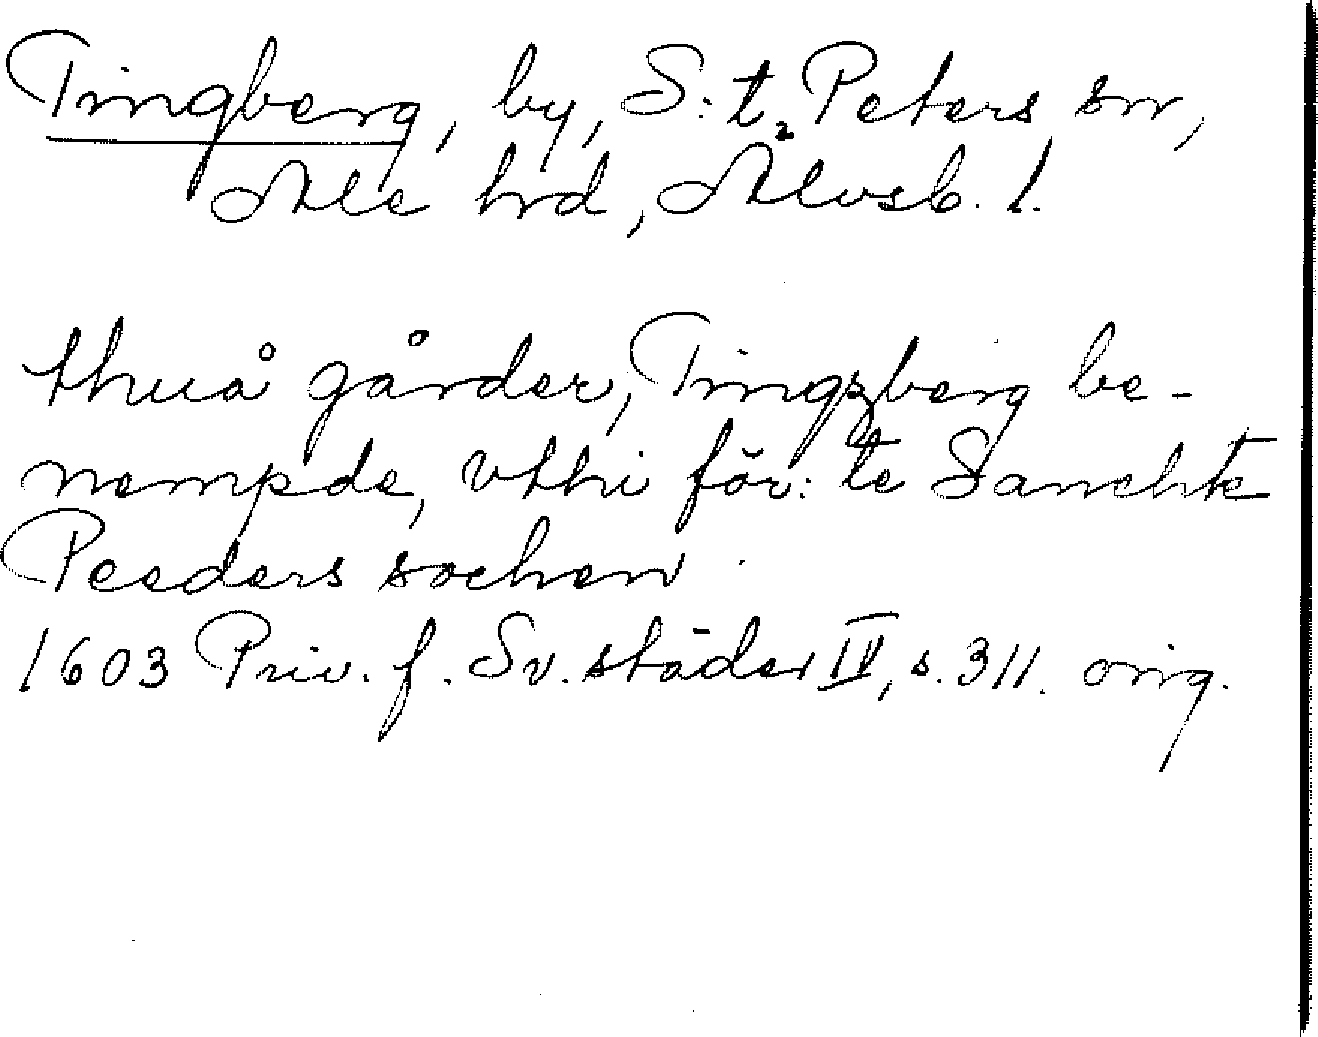 Tingberg, by, S:t Peters sn,
Ale hrd, Älvsb. l.
thuå gårder, Tingzberg be-
nempde, vthi för:te Sanchte
Peeders sochen.
1603 Priv. f. Sv. städer IV, s. 311. orig.